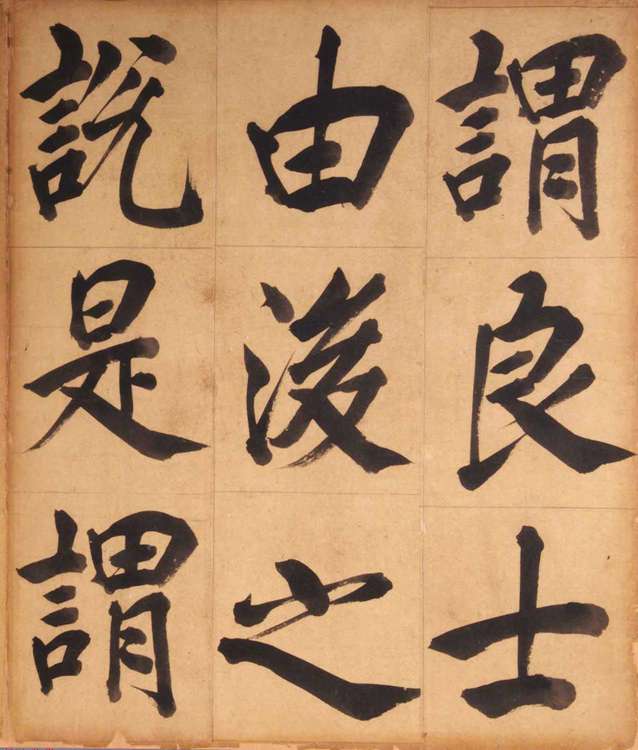 謂良士
由後之
說是謂